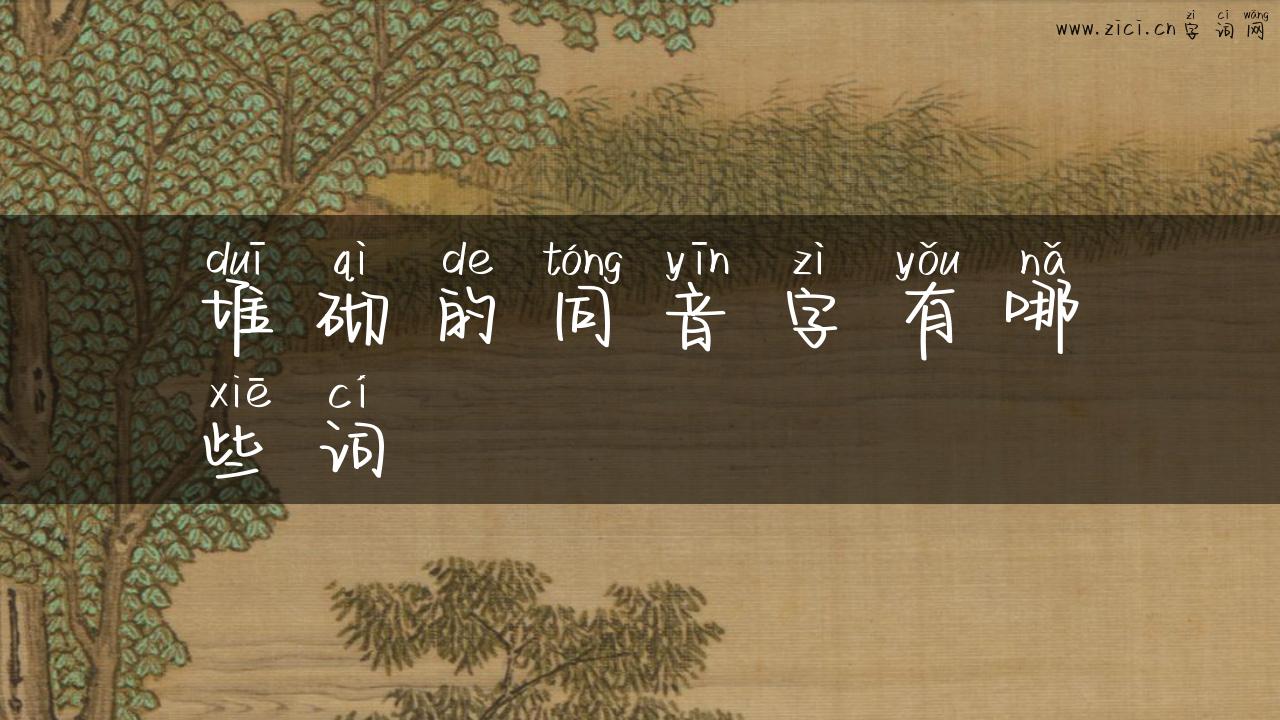 zì cí wǎng
www.zici.cn 字词网
duī qì de tóng yīn zì yǒu nǎ
堆砌的同音字有哪
xiē cí
些词